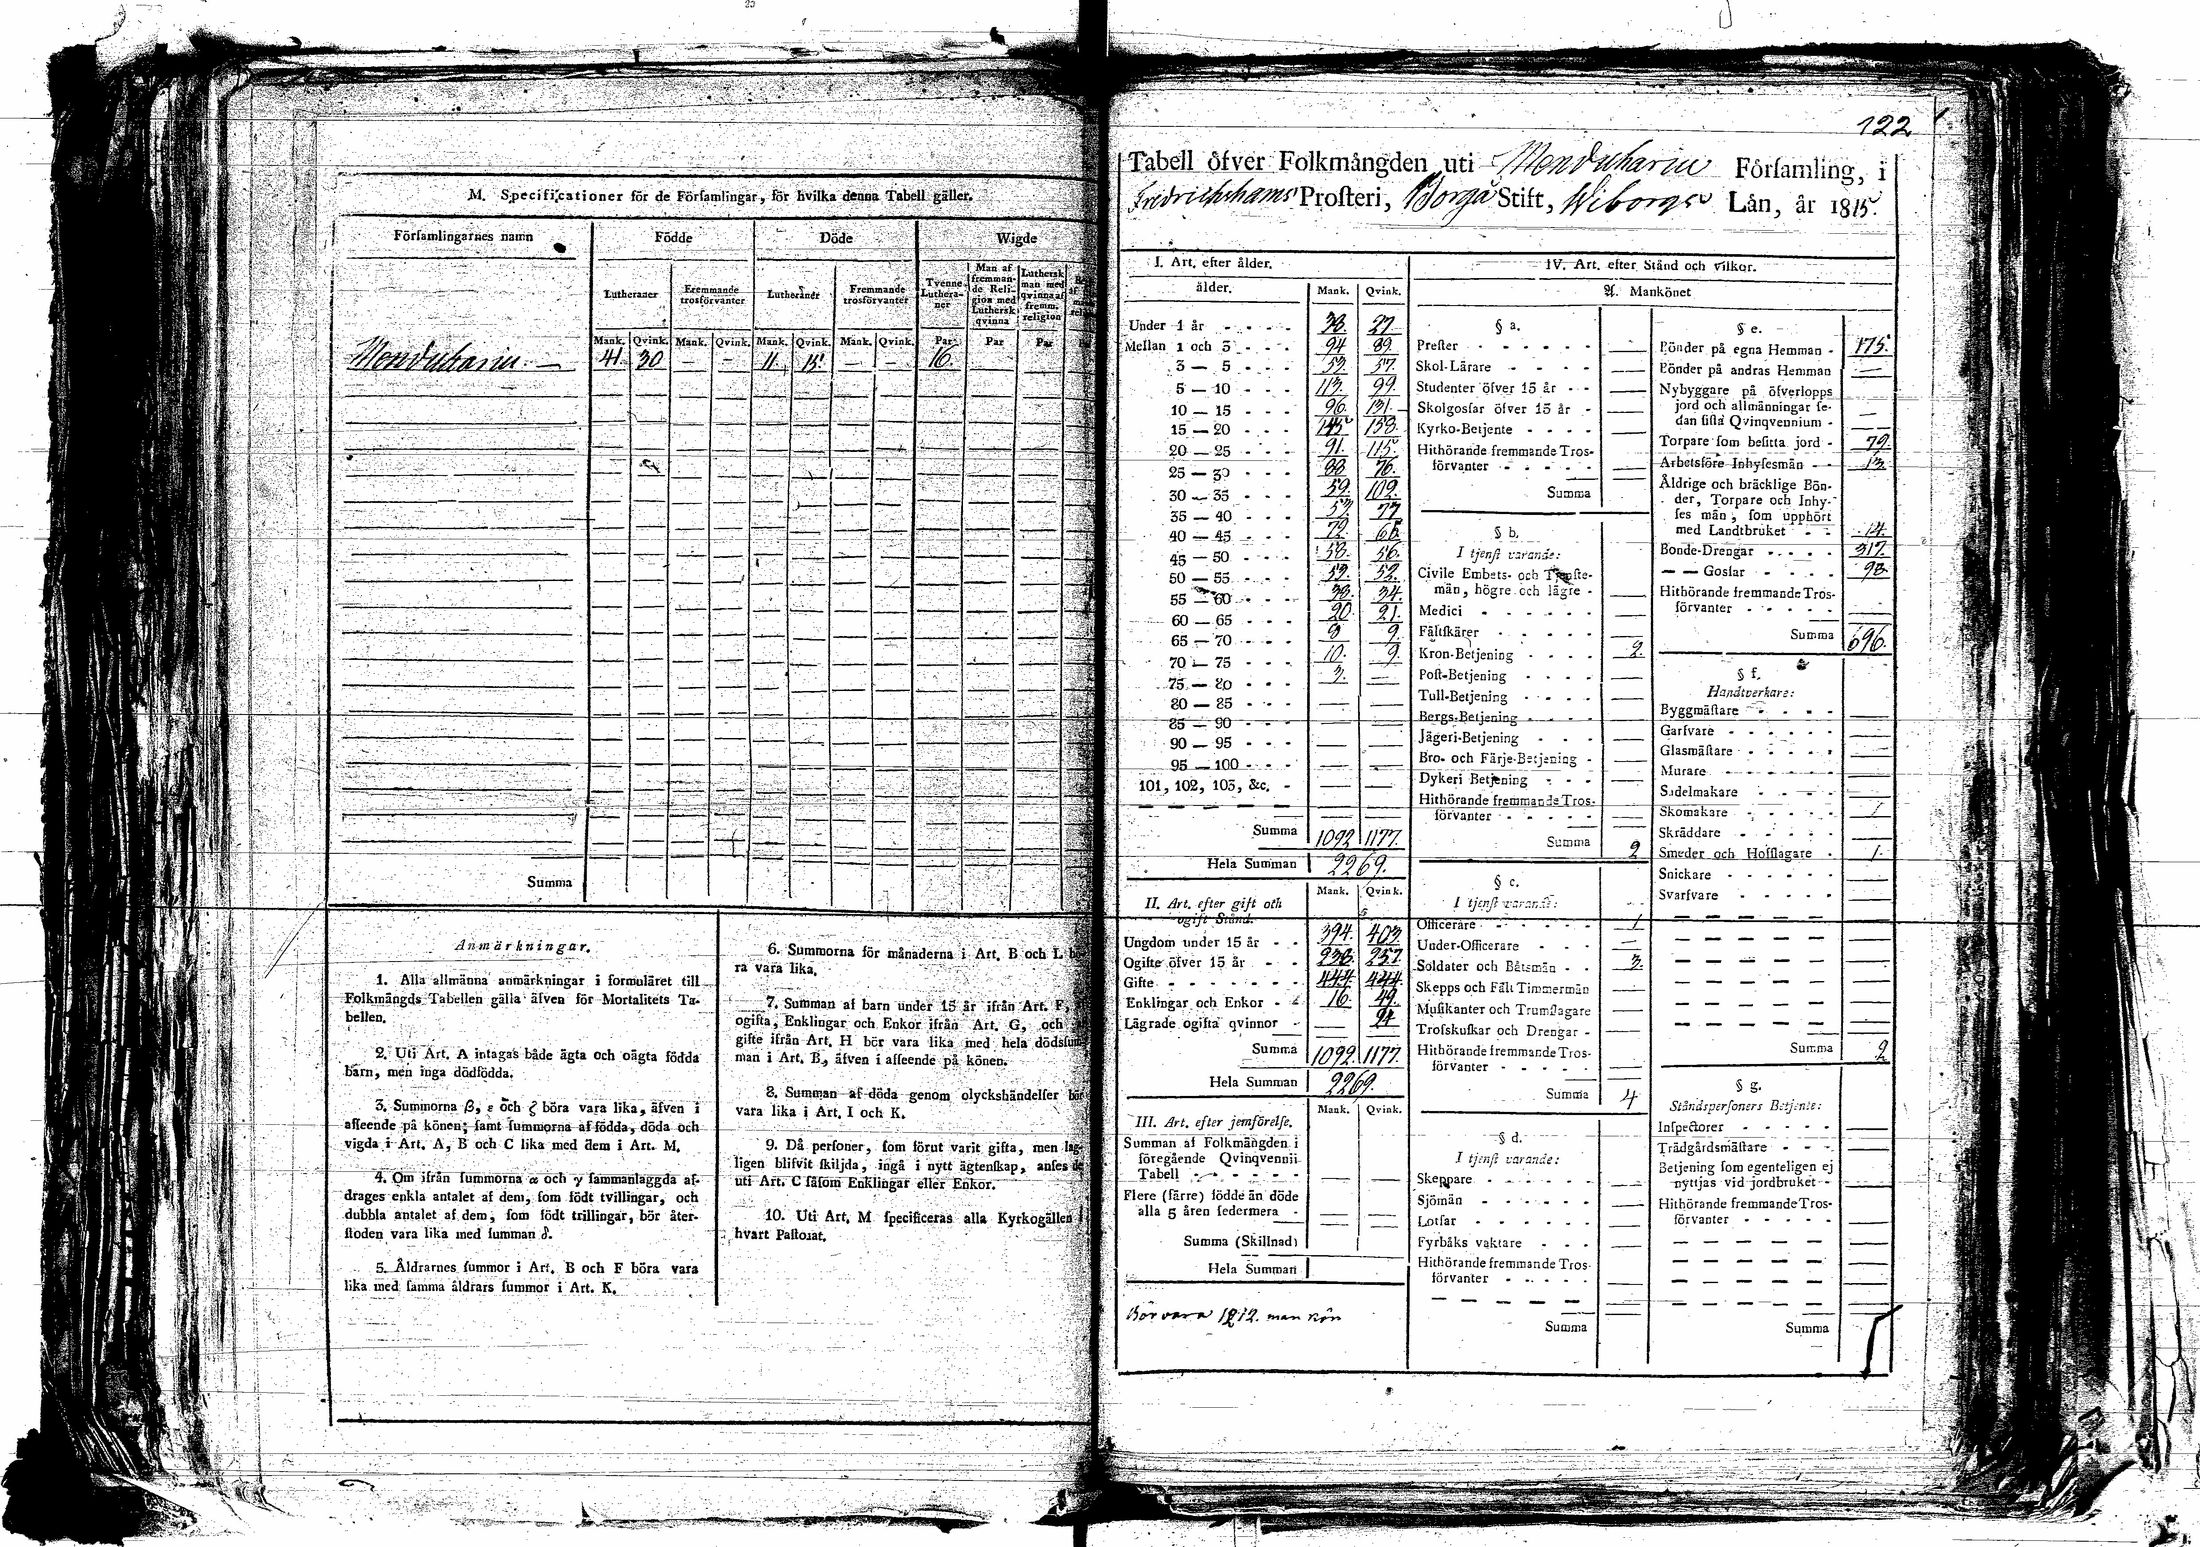 M. Specificationer för de Församlingar, för hvilka denna Tabell gäller.
Församlingarnes namn
Födde
Döde
Wigde
Lutheraner
Fremmande trosförvanter
Lutheraner
Fremmande trosförvanter
Tvenne Lutheraner
Man af fremmande Religion med Luthersk qvinna
Luthersk man med qvinna af fremm. religion
Mank. Qvink. Mank. Qvink. Mank. Qvink. Mank. Qvink. Par Par Par
Menduharju 41. 30 — — 11. 15. — — 16.
Summa
Anmärkningar.
1. Alla allmänna anmärkningar i formuläret till
Folkmängds Tabellen gälla äfven för Mortalitets Ta-
bellen.
2. Uti Art. A intagas både ägta och oägta födda
barn, men inga dödfödda.
3. Summorna β, ε och ζ böra vara lika, äfven i
afseende på könen; samt summorna af födda, döda och
vigda i Art. A, B och C lika med dem i Art. M.
4. Om ifrån summorna α och γ sammanlaggda af-
drages enkla antalet af dem, som födt tvillingar, och
dubbla antalet af dem, som födt trillingar, bör åter-
stoden vara lika med summan δ.
5. Åldrarnes summor i Art. B och F böra vara
lika med samma åldrars summor i Art. K.
6. Summorna för månaderna i Art. B och L bö-
ra vara lika.
7. Summan af barn under 15 år ifrån Art. F,
ogifta, Enklingar och Enkor ifrån Art. G, och
gifte ifrån Art. H bör vara lika med hela dödssum-
man i Art. B, äfven i afseende på könen.
8. Summan af döda genom olyckshändelser bör
vara lika i Art. I och K.
9. Då personer, som förut varit gifta, men lag-
ligen blifvit skiljda, ingå i nytt ägtenskap, anses de
uti Art. C såsom Enklingar eller Enkor.
10. Uti Art. M specificeras alla Kyrkogällen i
hvart Pastorat.
122
Tabell öfver Folkmängden uti Menduharju Församling, i
Fredrichshams Prosteri, Borgå Stift, Wiborgs Län, år 1815.
I. Art. efter ålder.
ålder. Mank. Qvink.
Under 1 år 38. 27
Mellan 1 och 3 94 89
3 — 5 53. 57.
5 — 10 113. 99.
10 — 15 96. 131.
15 — 20 145 158.
20 — 25 91. 115.
25 — 30 88 76.
30 — 35 59. 102.
35 — 40 53. 77
40 — 45 72. 66.
45 — 50 58. 56.
50 — 55 53. 52.
55 — 60 38. 34.
60 — 65 20. 21.
65 — 70 8 9.
70 — 75 10. 9.
75 — 80 3. —
80 — 85 — —
85 — 90 — —
90 — 95 — —
95 — 100 — —
101, 102, 103, &c. — —
Summa 1092 1177.
Hela Summan 2269.
II. Art. efter gift och ogift Stånd. Mank. Qvink.
Ungdom under 15 år 394. 403
Ogifte öfver 15 år 238. 257.
Gifte 444. 444.
Enklingar och Enkor 16. 49.
Lägrade ogifta qvinnor — 24
Summa 1092. 1177.
Hela Summan 2269.
III. Art. efter jemförelse. Mank. Qvink.
Summan af Folkmängden i
föregående Qvinqvennii
Tabell — —
Flere (färre) födde än döde
alla 5 åren sedermera — —
Summa (Skillnad)
Hela Summan
Bör vara 1212. man kön
IV. Art. efter Stånd och vilkor.
A. Mankönet
§ a.
Prester —
Skol-Lärare —
Studenter öfver 15 år —
Skolgossar öfver 15 år —
Kyrko-Betjente —
Hithörande fremmande Tros-
förvanter —
Summa
§ b.
I tjenst varande:
Civile Embets- och Tjenste-
män, högre och lägre —
Medici —
Fältskärer —
Kron-Betjening 2.
Post-Betjening —
Tull-Betjening —
Bergs-Betjening —
Jägeri-Betjening —
Bro- och Färje-Betjening —
Dykeri Betjening —
Hithörande fremmande Tros-
förvanter —
Summa 2
§ c.
I tjenst varande:
Officerare 1
Under-Officerare —
Soldater och Båtsmän 3.
Skepps och Fält Timmermän —
Musikanter och Trumslagare —
Trosskuskar och Drengar —
Hithörande fremmande Tros-
förvanter —
Summa 4
§ d.
I tjenst varande:
Skeppare —
Sjömän —
Lotsar —
Fyrbåks vaktare —
Hithörande fremmande Tros-
förvanter —
Summa
§ e.
Bönder på egna Hemman 175.
Bönder på andras Hemman —
Nybyggare på öfverlopps
jord och allmänningar se-
dan sista Qvinqvennium —
Torpare som besitta jord 79.
Arbetsföre Inhysesmän 13.
Åldrige och bräcklige Bön-
der, Torpare och Inhy-
ses män, som upphört
med Landtbruket 14.
Bonde-Drengar 317.
— — Gossar 98.
Hithörande fremmande Tros-
förvanter —
Summa 696.
§ f.
Handtverkare:
Byggmästare —
Garfvare —
Glasmästare —
Murare —
Sadelmakare —
Skomakare 1
Skräddare —
Smeder och Hofslagare 1.
Snickare —
Svarfvare —
Summa 2
§ g.
Ståndspersoners Betjente:
Inspectorer —
Trädgårdsmästare —
Betjening som egenteligen ej
nyttjas vid jordbruket —
Hithörande fremmande Tros-
förvanter —
Summa